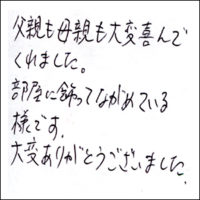 父親も母親も大変喜んで
くれました。
部屋に飾ってながめている
様です.
大変ありがとうございました.